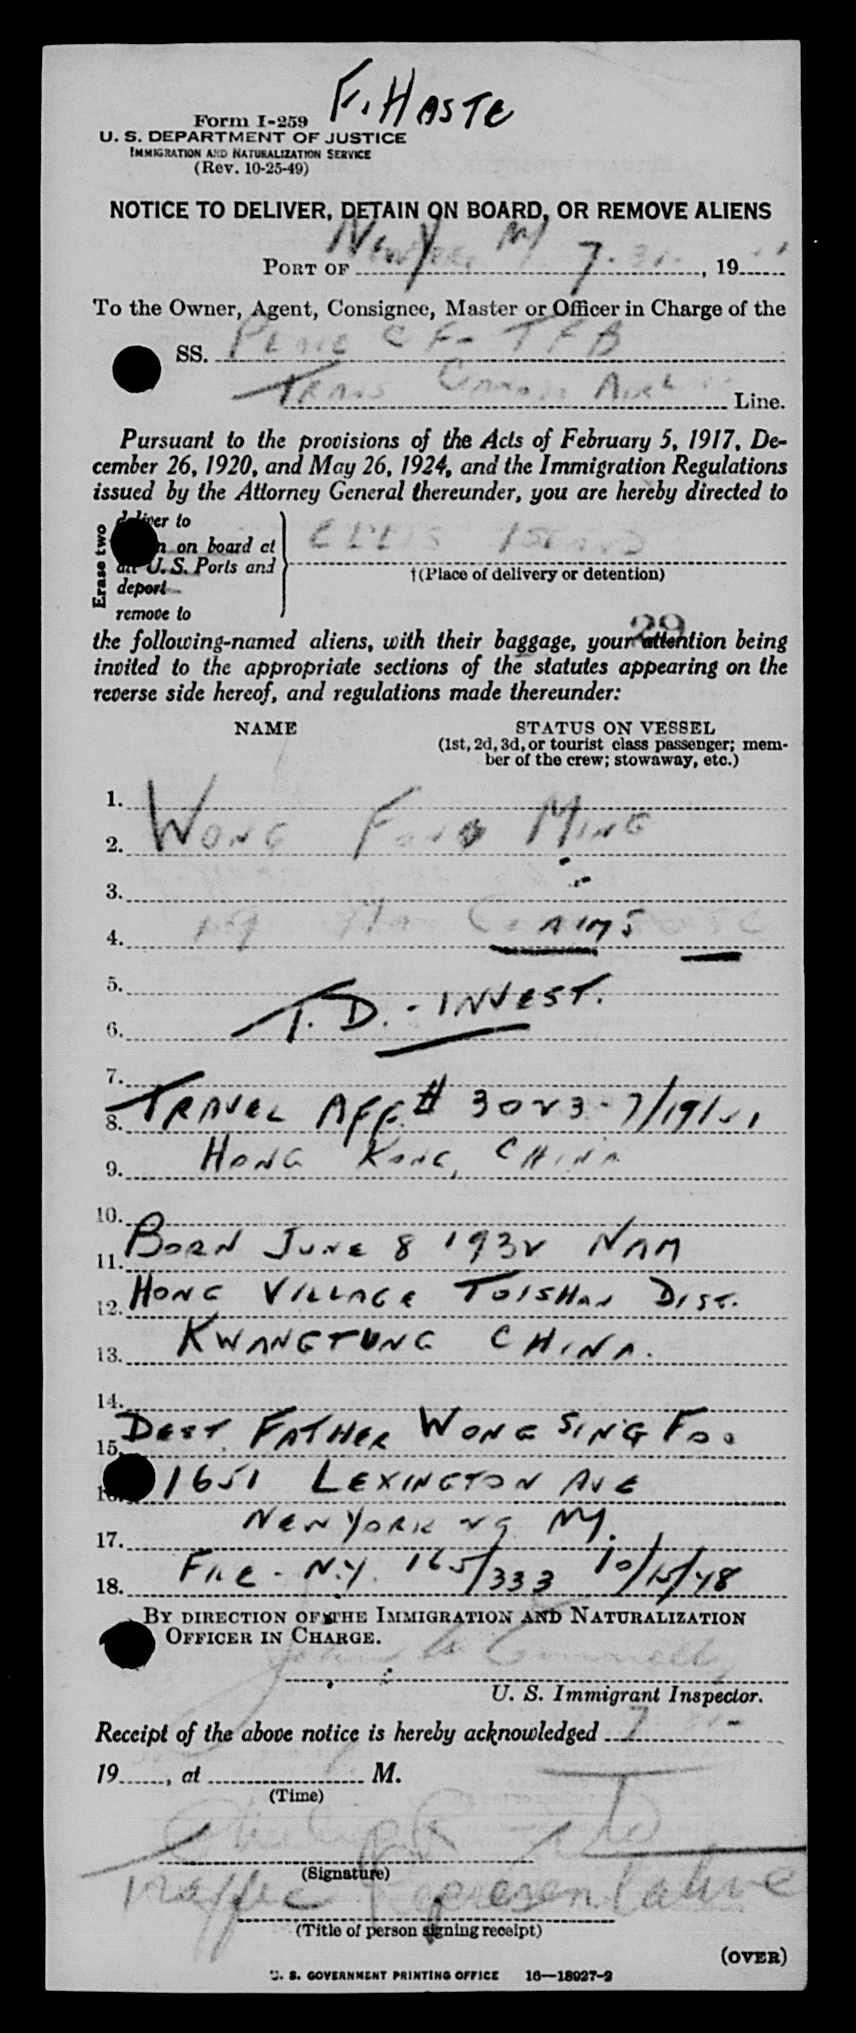 F. HASTE
Form I-259
U. S. DEPARTMENT OF JUSTICE
IMMIGRATION AND NATURALIZATION SERVICE
(Rev. 10-25-49)
NOTICE TO DELIVER, DETAIN ON BOARD, OR REMOVE ALIENS
PORT OF New York NY 7-31-, 19
To the Owner, Agent, Consignee, Master or Officer in Charge of the
SS. PLANE CF-TFB
TRANS CANADA AIRLINES Line.
Pursuant to the provisions of the Acts of February 5, 1917, De-
cember 26, 1920, and May 26, 1924, and the Immigration Regulations
issued by the Attorney General thereunder, you are hereby directed to
Erase two
deliver to
on board at
all U. S. Ports and
deport
remove to
ELLIS ISLAND
†(Place of delivery or detention)
29
the following-named aliens, with their baggage, your attention being
invited to the appropriate sections of the statutes appearing on the
reverse side hereof, and regulations made thereunder:
NAME STATUS ON VESSEL
(1st, 2d, 3d, or tourist class passenger; mem-
ber of the crew; stowaway, etc.)
1.
2. WONG FONG MING
3.
4. CLAIMS USC
5.
6. T.D. - INVEST.
7.
8. TRAVEL AFF. # 3023 - 7/19/51
9. HONG KONG, CHINA
10.
11. BORN JUNE 8 1932 NAM
12. HONG VILLAGE TOISHAN DIST.
13. KWANGTUNG CHINA.
14.
15. DEST. FATHER WONG SING FOO
16. 1651 LEXINGTON AVE
17. NEW YORK 29 NY.
18. FILE - N.Y. 165/333 10/15/48
BY DIRECTION OF THE IMMIGRATION AND NATURALIZATION
OFFICER IN CHARGE.
U. S. Immigrant Inspector.
Receipt of the above notice is hereby acknowledged 7 31-
19, at M.
(Time)
(Signature)
Traffic Representative
(Title of person signing receipt)
(OVER)
U. S. GOVERNMENT PRINTING OFFICE 16—18927-2